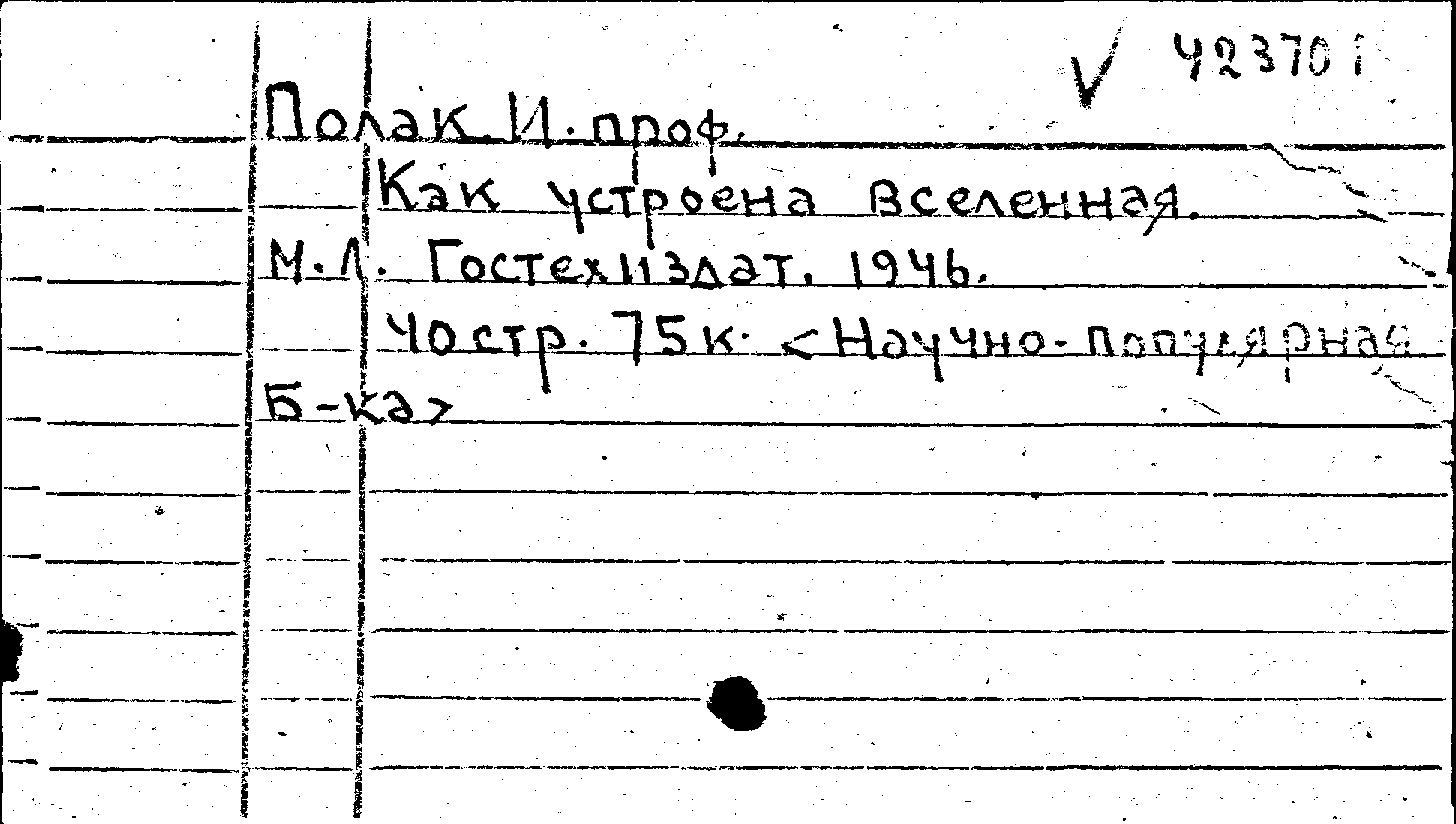 √ 423701
Полак. И. проф.
Как устроена вселенная.
М.Л. Гостехиздат. 1946.
40 стр. 75 к. <Научно-популярная
Б-ка>